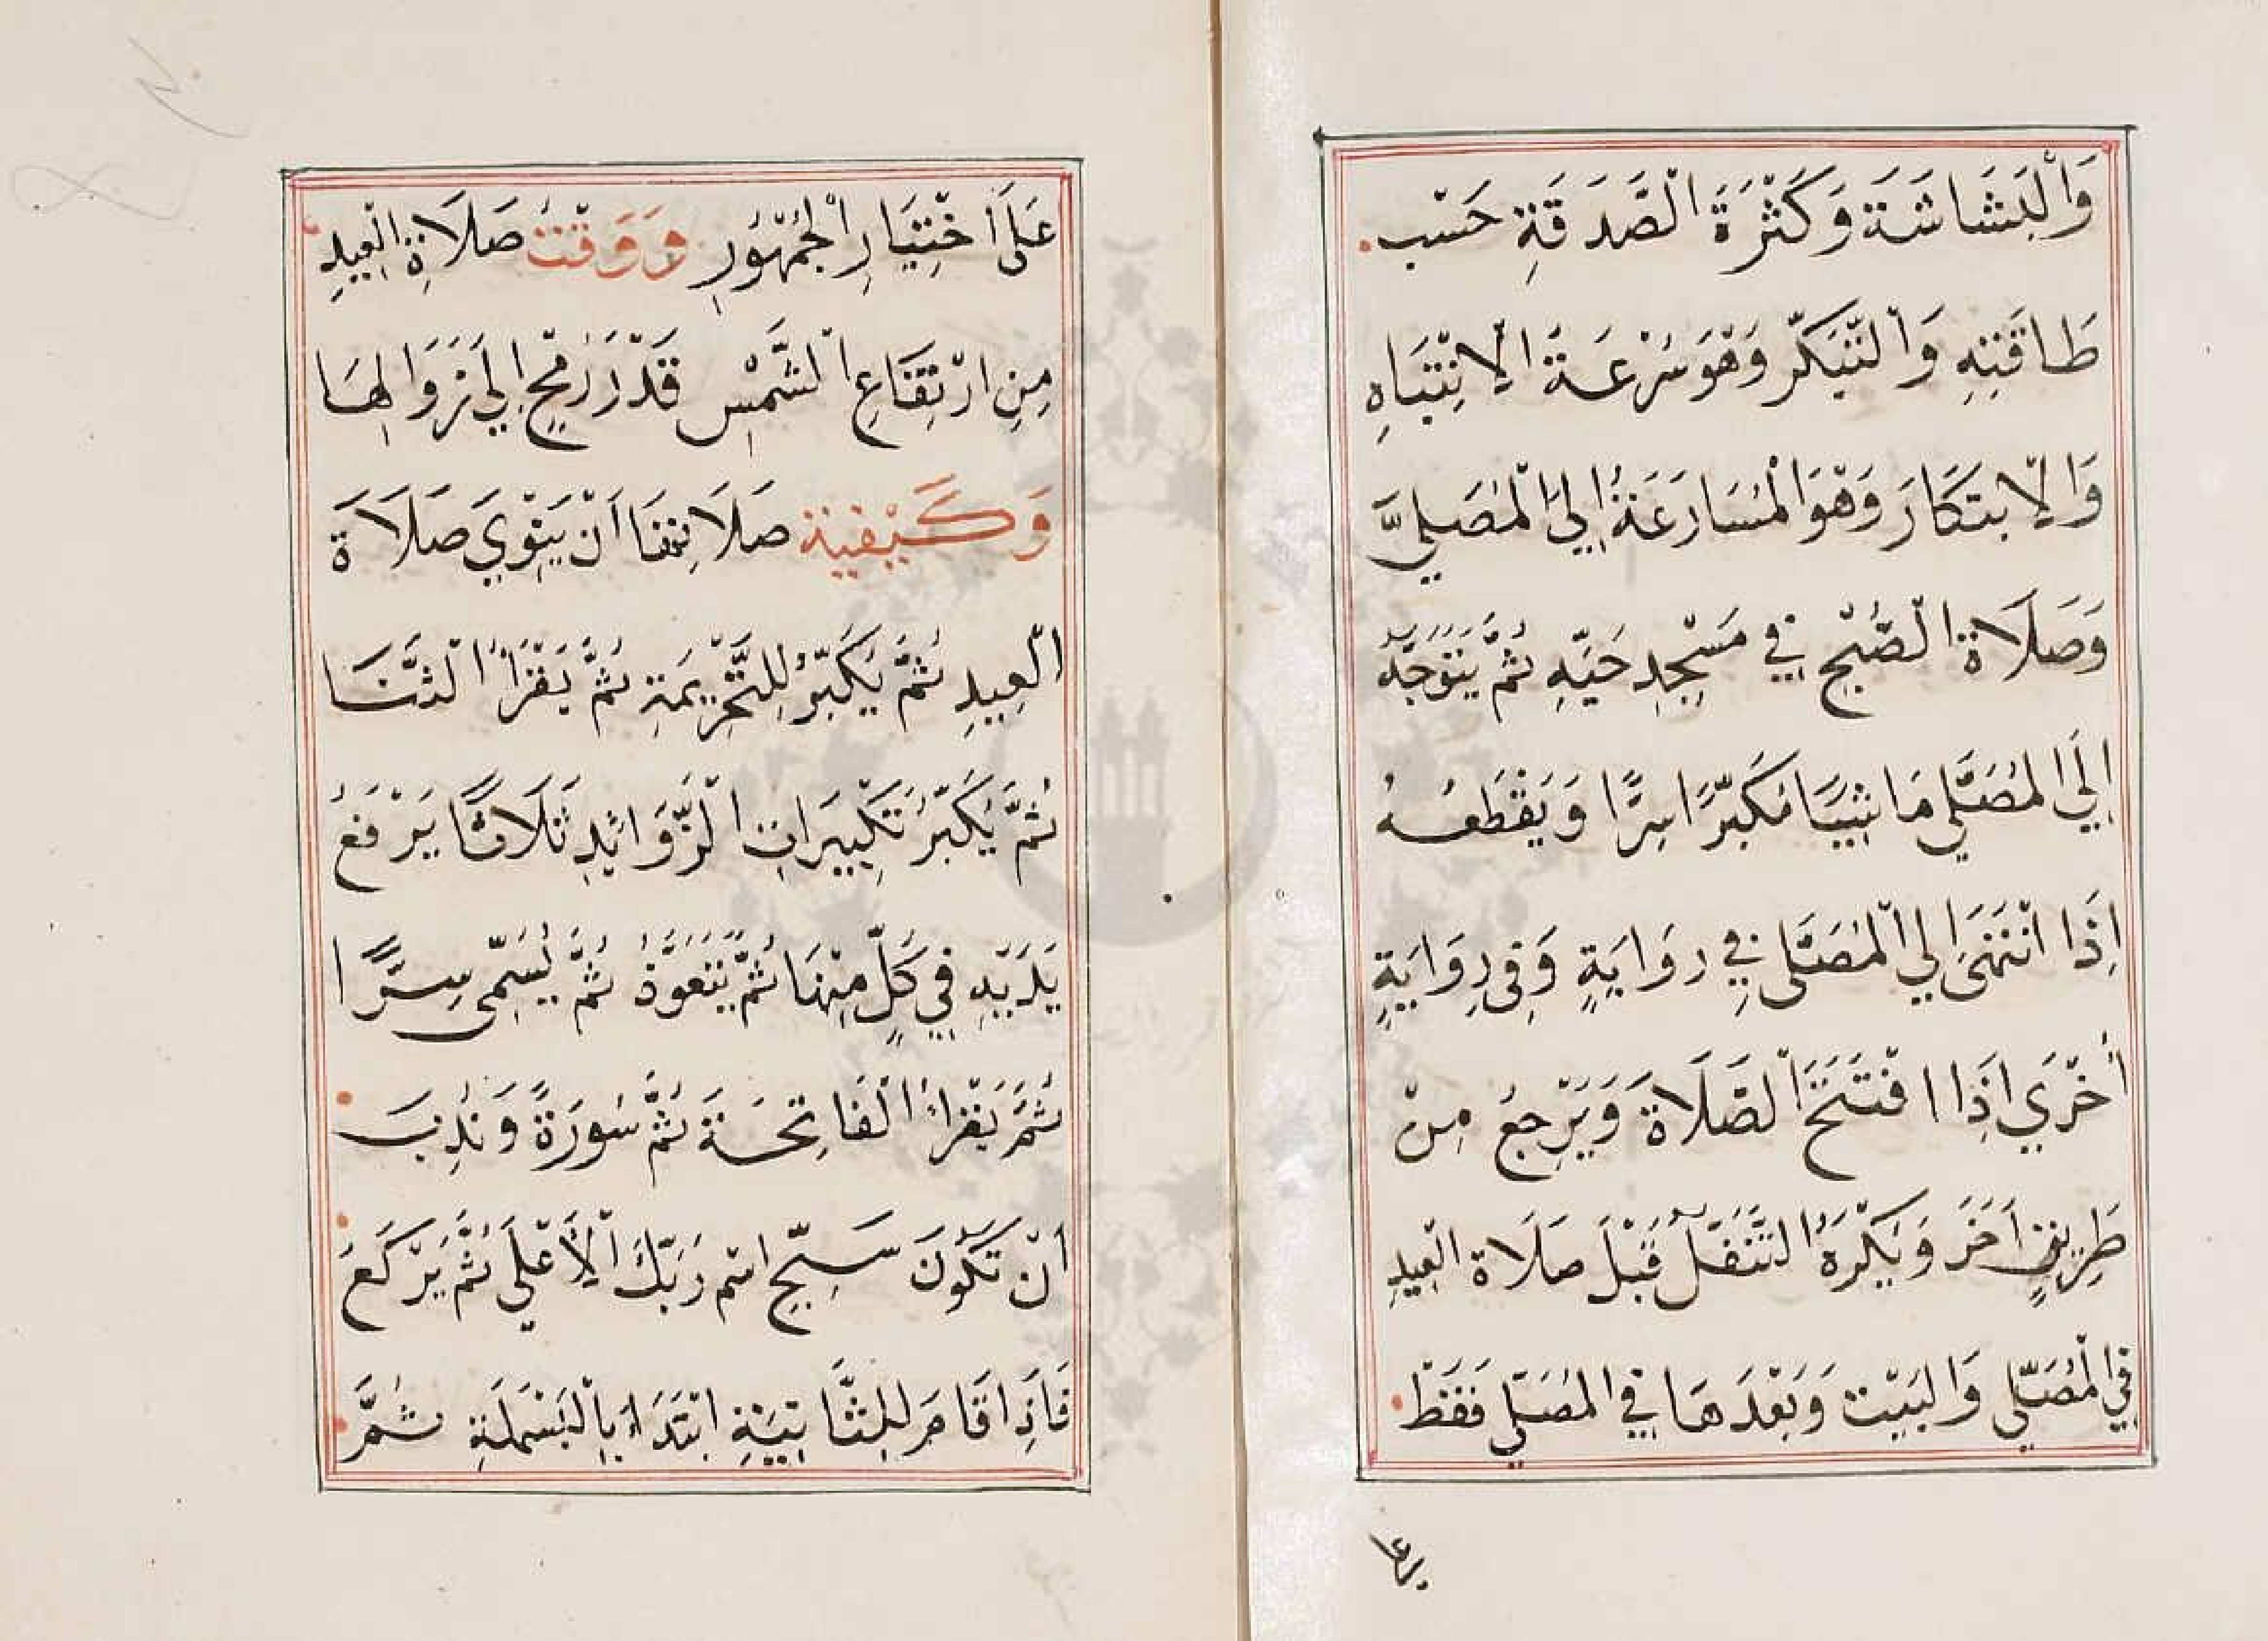 وَالْبَشَاشَة وَكَثْرَةَ الْصَّدَقَةِ حَسْب
طَاقَتِهِ وَالتَّبَكّر وَهْوَ سُرْعَةُ الْاِنْتِبَاهِ
وَالْاِبتكَارَ وَهْوَ الْمُسَارَعَةُ اِلَى الْمُصَلِيَّ
وَصَلَاةَ الْصُبْحِ فِي مَسْجِدِ حَيّهِ ثُمَّ يَتَوَجَّهُ
اِلَى الْمُصَلَّي مَاشِيًا مُكَبِّرًا سِرًّا وَيَقْطَعُهُ
اِذَا انْتَهَى اِلَي الْمُصَلَّى فِي رِوَايَةٍ وَفِى رِوَايَةٍ
اُخْرَي اِذَا افْتَتَحَ الْصَّلَاةَ وَيَرْجِعُ مِنْ
طَرِيقٍ اَخَرَ وَيُكْرَهُ الْتَّنَفّلُ قَبْلَ صَلَاة الْعِيدِ
فِي الْمُصَلّي وَالبَيْت وَبَعْدَهَا فِي الْمُصَلّي فَقَطْ
عَلَى اخْتِيَارِ الْجُمْهُورِ وَوَقْتُ صَلَاةِ الْعِيدِ
مِنِ ارْتِفَاعِ الْشَّمْسِ قَدْرَ رُمْحٍ اِلَي زَوَالِهَا
وَكَيْفِيَة صَلَاتِهَا اَنْ يَنْوِيَ صَلَاةَ
الْعِيدِ ثُمَّ يُكَبّرُ لِلتَّحْرِيمَةِ ثُمَّ يَقْرَأُ الْثَّنَا
ثُمَّ يُكَبّرُ تَكْبِيرَاتِ الْزَّوَائِدِ ثَلَاثًا يَرْفَعُ
يَدَيْهِ فِي كُلّ مِنْهَا ثُمَّ يَتَعَوَّذُ ثُمَّ يُسَمّى سِرًّا
ثُمَّ يَقْرَاُ الْفَاتِحَةَ ثُمَّ سُورَةً وَنُدِبَ
اَنْ تَكُونَ سَبِّحِ اسْم رَبّكَ الْاَعْلَي ثُمَّ يَرْكَعُ
فَاِذَا قَامَ لِلثَّانِيَةِ ابْتَدَاءَ بِالْبَسْمَلَةِ ثُمَّ